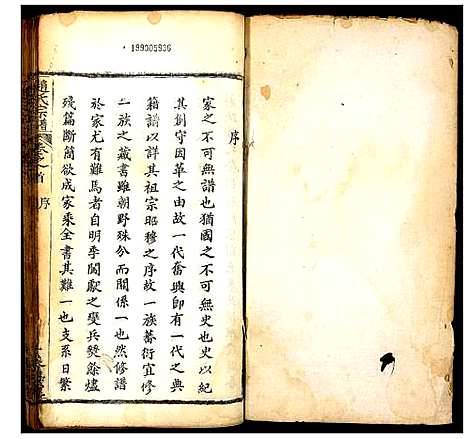 199305936
序
家之不可無譜也猶國之不可無史也史以紀
其創守因革之由故一代奮興即有一代之典
籍譜以詳其祖宗昭穆之序故一族蕃衍宜修
一族之藏書雖朝野殊分而關係一也然修譜
於家尤有難焉者自明季闖獻之變兵燹餘爐
殘篇斷簡欲成家乘全書其難一也支系日繁
趙氏宗譜
卷之首
序